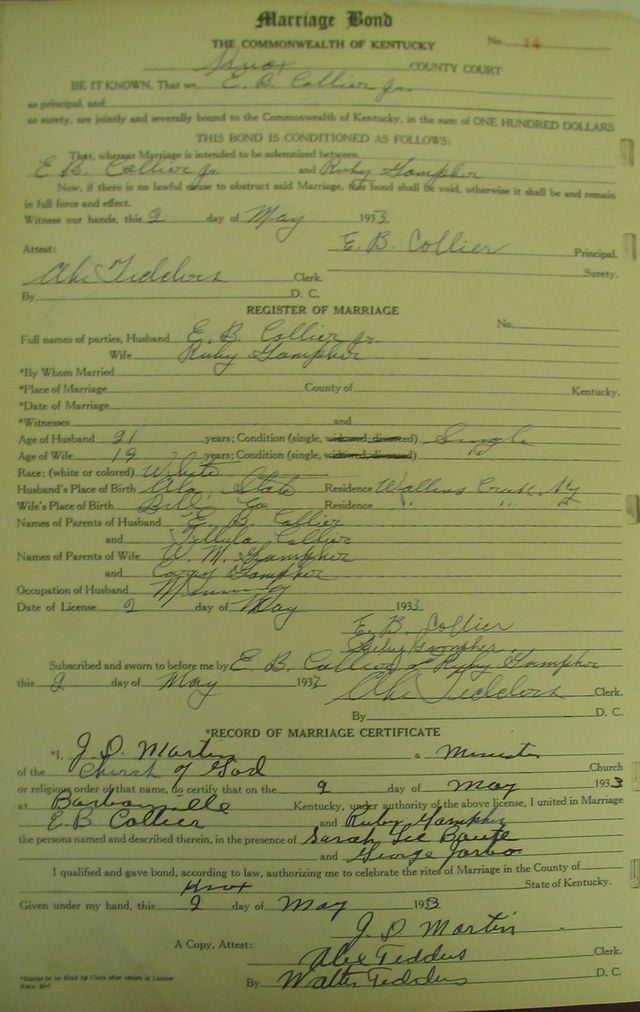 Marriage Bond
THE COMMONWEALTH OF KENTUCKY No. 14
Knox COUNTY COURT
BE IT KNOWN, That we E. B. Collier Jr.
as principal, and
as surety, are jointly and severally bound to the Commonwealth of Kentucky, in the sum of ONE HUNDRED DOLLARS
THIS BOND IS CONDITIONED AS FOLLOWS:
That, whereas Marriage is intended to be solemnized between
E. B. Collier Jr. and Ruby Gampher
Now, if there is no lawful cause to obstruct said Marriage, this bond shall be void, otherwise it shall be and remain
in full force and effect.
Witness our hands, this 2 day of May 1933
E. B. Collier Principal.
Attest:
Clerk. Surety.
By D. C.
REGISTER OF MARRIAGE
No.
Full names of parties, Husband E. B. Collier Jr.
Wife Ruby Gampher
*By Whom Married
*Place of Marriage County of Kentucky.
*Date of Marriage
*Witnesses and
Age of Husband 21 years; Condition (single, widowed, divorced) Single
Age of Wife 19 years; Condition (single, widowed, divorced)
Race: (white or colored) White
Husband's Place of Birth Ala. State Residence Wallins Creek, Ky
Wife's Place of Birth Bell Co Residence " " "
Names of Parents of Husband E. B. Collier
and Collier
Names of Parents of Wife W. M. Gampher
and Gampher
Occupation of Husband
Date of License 2 day of May 1933
E. B. Collier
Ruby Gampher
Subscribed and sworn to before me by E. B. Collier & Ruby Gampher
this 2 day of May 1933 Clerk.
By D. C.
*RECORD OF MARRIAGE CERTIFICATE
*I, J. D. Martin a Minister
of the Church of God Church
or religious order of that name, do certify that on the 2 day of May 1933
at Barbourville Kentucky, under authority of the above license, I united in Marriage
E B Collier and Ruby Gampher
the persons named and described therein, in the presence of Sarah Lee
and George
I qualified and gave bond, according to law, authorizing me to celebrate the rites of Marriage in the County of
Knox State of Kentucky.
Given under my hand, this 2 day of May 1933
J. D. Martin
A Copy, Attest: Alex Teddus Clerk.
By Walter Teddus D. C.
*Blanks to be filled by Clerk after return of License